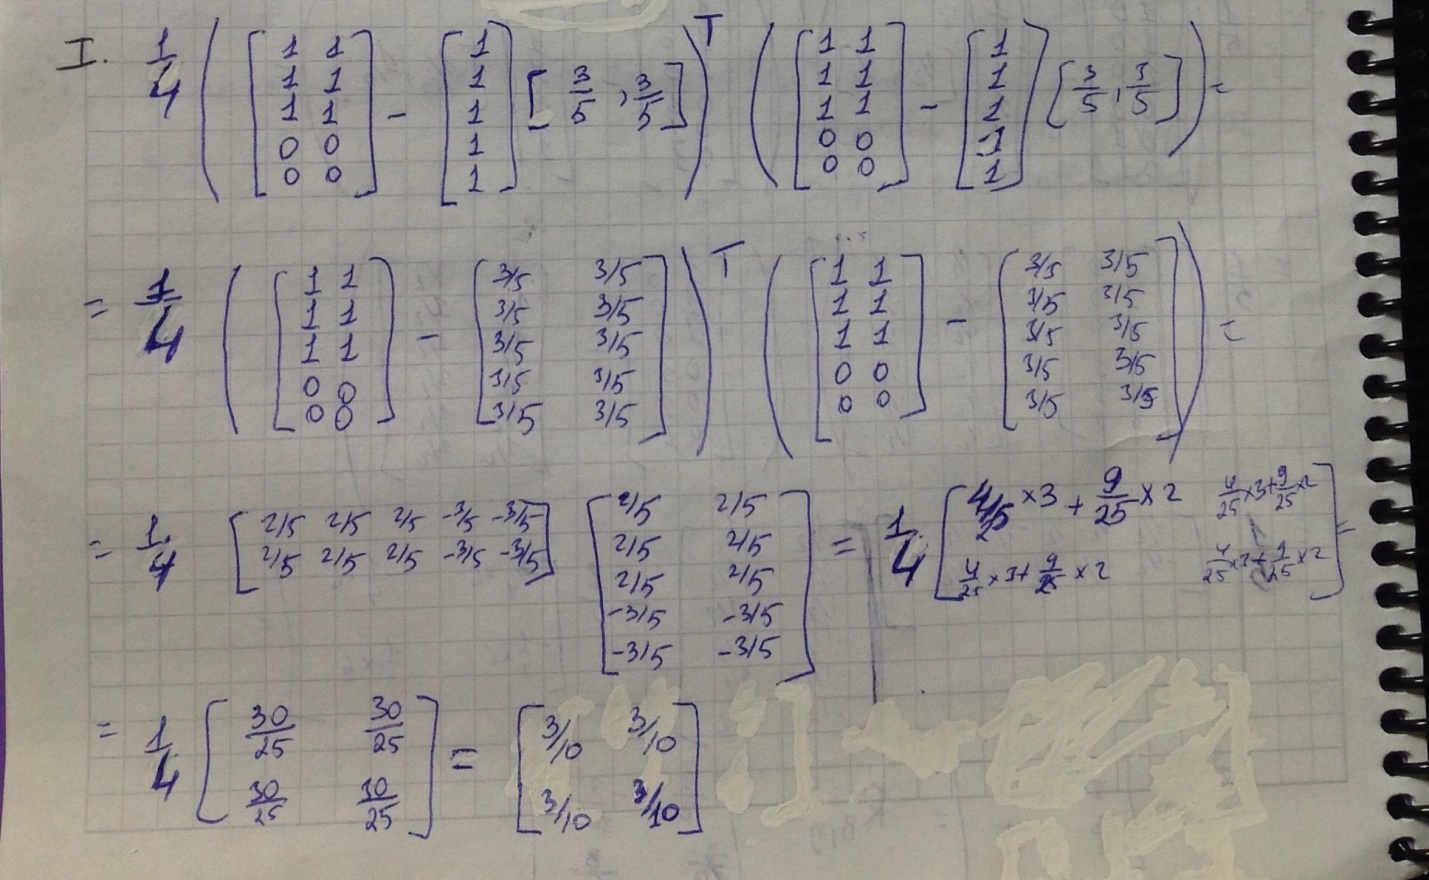 I. 1/4 ( [ 1 1 ; 1 1 ; 1 1 ; 0 0 ; 0 0 ] - [ 1 ; 1 ; 1 ; 1 ; 1 ] [ 3/5 , 3/5 ] )^T ( [ 1 1 ; 1 1 ; 1 1 ; 0 0 ; 0 0 ] - [ 1 ; 1 ; 1 ; 1 ; 1 ] [ 3/5 , 3/5 ] ) =
= 1/4 ( [ 1 1 ; 1 1 ; 1 1 ; 0 0 ; 0 0 ] - [ 3/5 3/5 ; 3/5 3/5 ; 3/5 3/5 ; 3/5 3/5 ; 3/5 3/5 ] )^T ( [ 1 1 ; 1 1 ; 1 1 ; 0 0 ; 0 0 ] - [ 3/5 3/5 ; 3/5 3/5 ; 3/5 3/5 ; 3/5 3/5 ; 3/5 3/5 ] ) =
= 1/4 [ 2/5 2/5 2/5 -3/5 -3/5 ; 2/5 2/5 2/5 -3/5 -3/5 ] [ 2/5 2/5 ; 2/5 2/5 ; 2/5 2/5 ; -3/5 -3/5 ; -3/5 -3/5 ] = 1/4 [ 4/25 ×3 + 9/25 ×2 4/25 ×3 + 9/25 ×2 ; 4/25 ×3 + 9/25 ×2 4/25 ×3 + 9/25 ×2 ] =
= 1/4 [ 30/25 30/25 ; 30/25 30/25 ] = [ 3/10 3/10 ; 3/10 3/10 ]